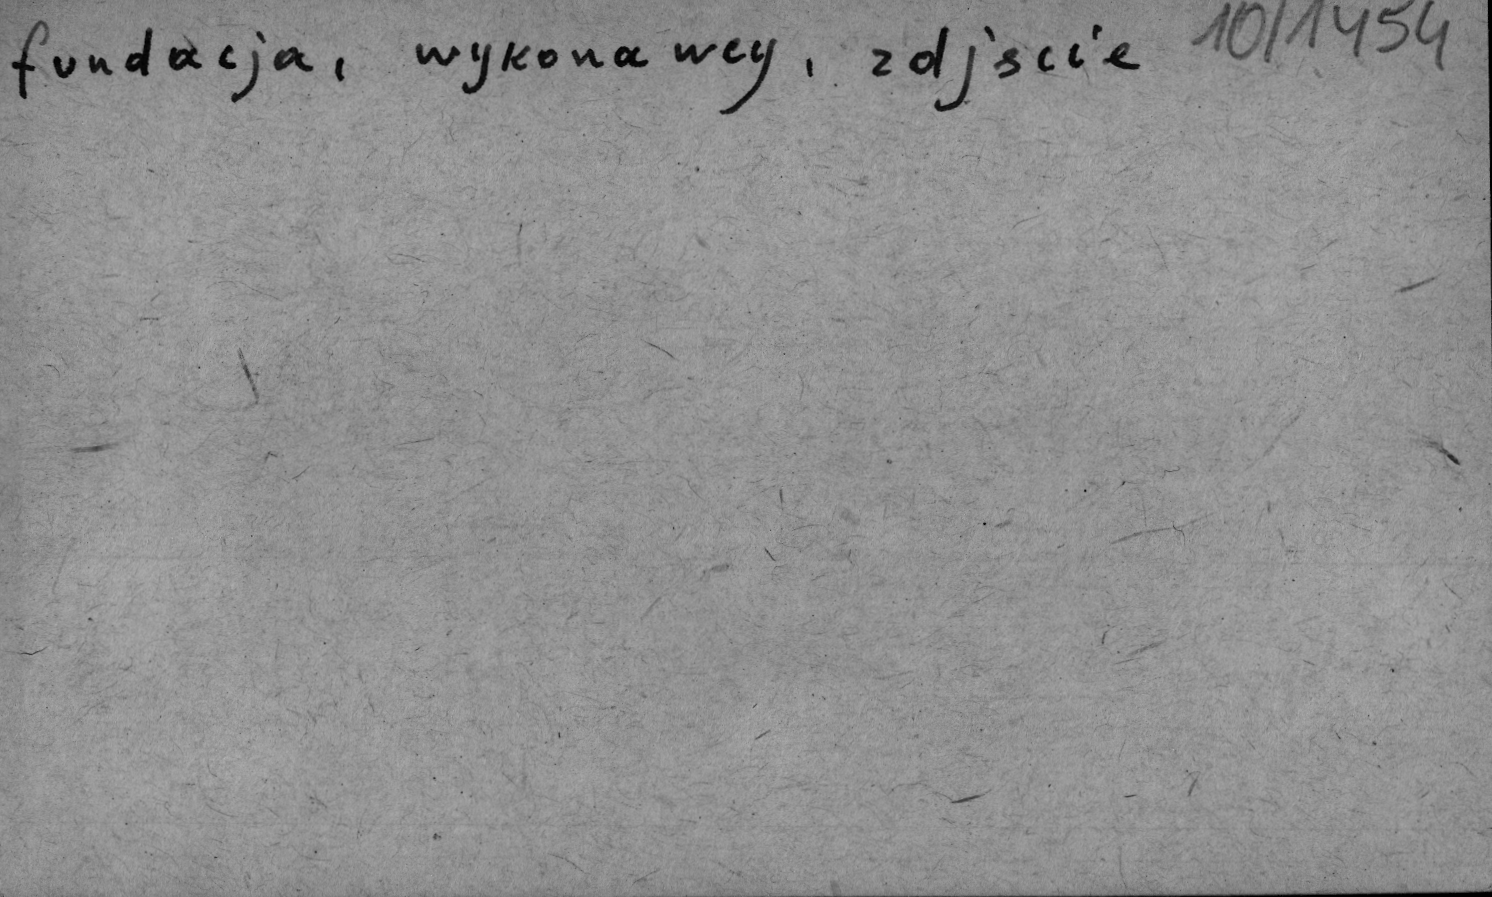 fundacja, wykonawcy, zdjscie 10/1454